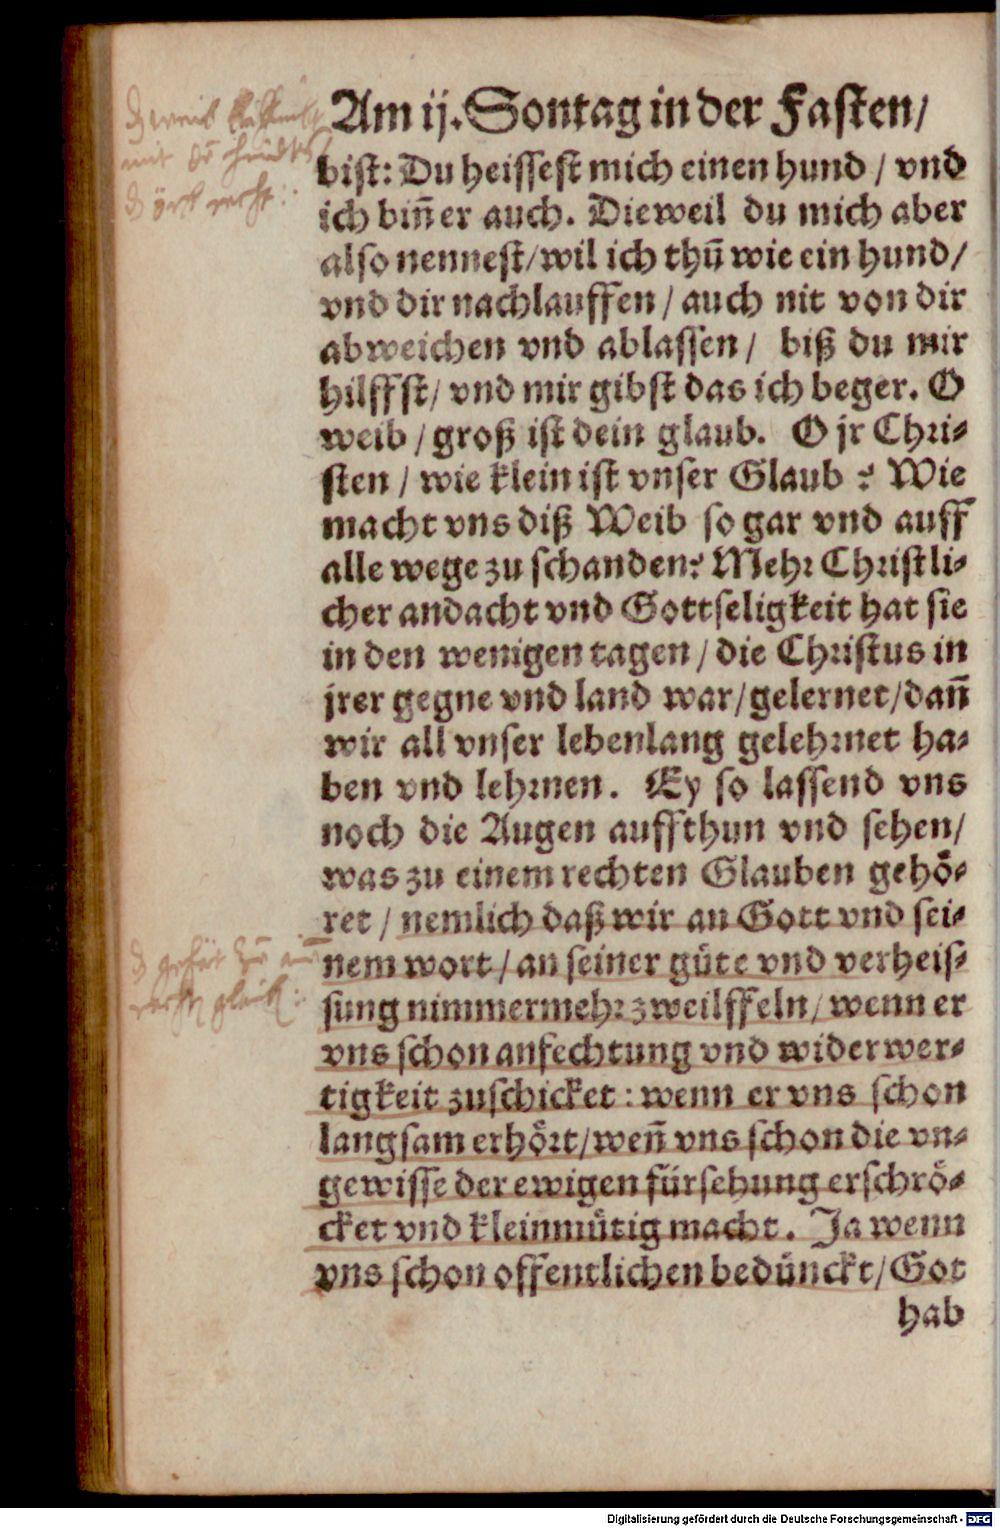 Am ij. Sontag in der Fasten/
bist: Du heissest mich einen hund / vnd
ich biñ er auch. Dieweil du mich aber
also nennest/wil ich thuͦ̃ wie ein hund/
vnd dir nachlauffen / auch nit von dir
abweichen vnd ablassen / biß du mir
hilffst/ vnd mir gibst das ich beger. O
weib / groß ist dein glaub. O jr Chri⸗
sten / wie klein ist vnser Glaub ? Wie
macht vns diß Weib so gar vnd auff
alle wege zu schanden? Mehr Christli⸗
cher andacht vnd Gottseligkeit hat sie
in den wenigen tagen / die Christus in
jrer gegne vnd land war/gelernet/dañ
wir all vnser lebenlang gelehrnet ha⸗
ben vnd lehrnen. Ey so lassend vns
noch die Augen auffthun vnd sehen/
was zu einem rechten Glauben gehoͤ⸗
ret / nemlich daß wir an Gott vnd sei⸗
nem wort / an seiner guͤte vnd verheis⸗
sung nimmermehr zweilffeln/ wenn er
vns schon anfechtung vnd widerwer⸗
tigkeit zuschicket : wenn er vns schon
langsam erhoͤrt/weñ vns schon die vn⸗
gewisse der ewigen fürsehung erschroͤ⸗
cket vnd kleinmuͤtig macht. Ja wenn
vns schon offentlichen bedünckt/ Got
hab
Digitalisierung gefördert durch die Deutsche Forschungsgemeinschaft - DFG